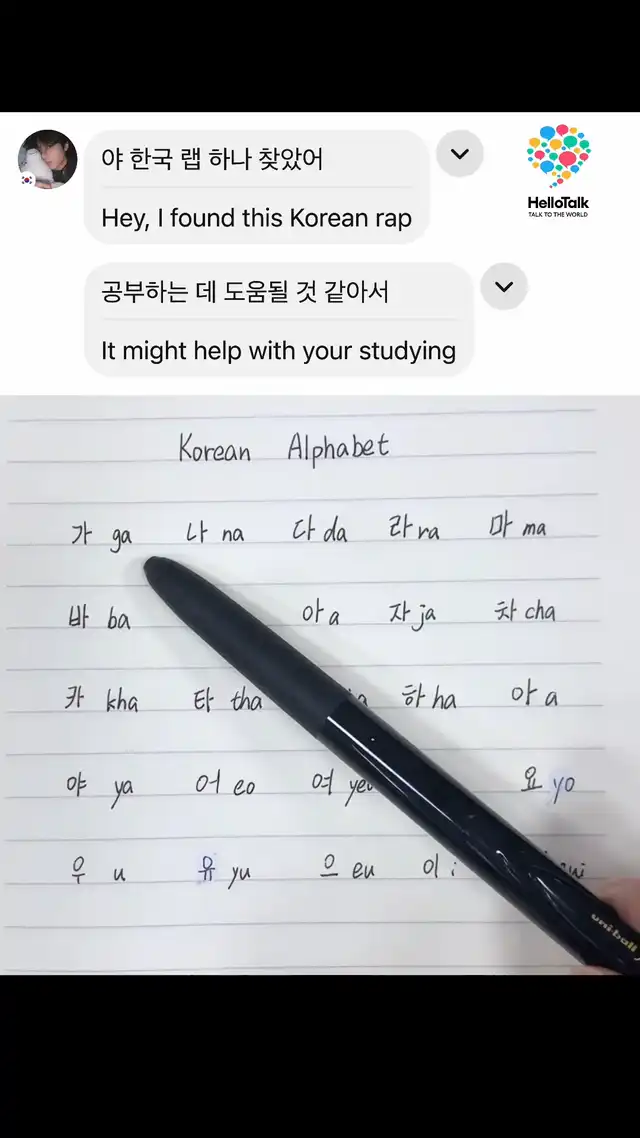 야 한국 랩 하나 찾았어
Hey, I found this Korean rap
HelloTalk
TALK TO THE WORLD
공부하는 데 도움될 것 같아서
It might help with your studying
Korean Alphabet
가 ga 나 na 다 da 라 ra 마 ma
바 ba 아 a 자 ja 차 cha
카 kha 타 tha 하 ha 아 a
야 ya 어 eo 여 요 yo
우 u 유 yu 으 eu 이 i
uni-ball